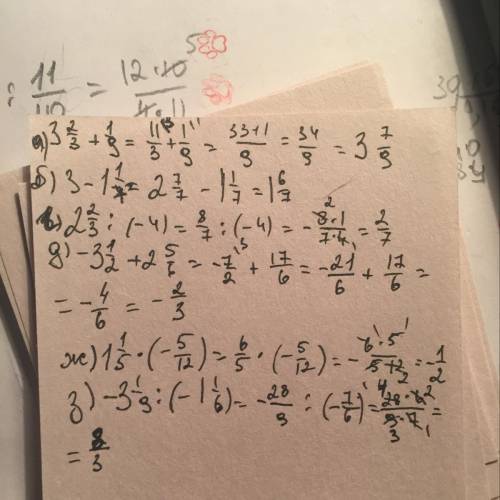 : 11/40 = 12·10/4·11 5
а) 3 2/3 + 1/9 = 11/3 + 1/9 = 33+1/9 = 34/9 = 3 7/9
б) 3 - 1 1/7 = 2 7/7 - 1 1/7 = 1 6/7
в) 2 2/3 : (-4) = 8/7 : (-4) = - 8·1/7·4 = 2/7
д) -3 1/2 + 2 5/6 = -7/2 + 17/6 = -21/6 + 17/6 =
= -4/6 = -2/3
ж) 1 1/5 · (-5/12) = 6/5 · (-5/12) = - 6·5/5·12 = -1/2
з) -3 1/9 : (-1 1/6) = -28/9 : (-7/6) = 28·6/9·7 =
= 8/3